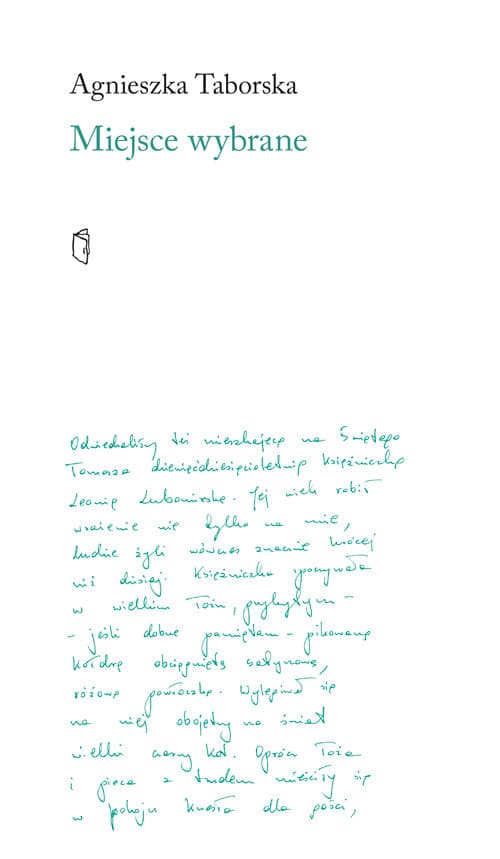 Agnieszka Taborska
Miejsce wybrane
Odwiedzaliśmy też mieszkającą na Świętego
Tomasza dziewięćdziesięcioletnią księżniczkę
Leonię Lubomirską. Jej wiek robił
wrażenie nie tylko na mnie,
ludzie żyli wówczas znacznie krócej
niż dzisiaj. Księżniczka spoczywała
w wielkim łożu, przykrytym –
– jeśli dobrze pamiętam – pikowaną
kołdrą obciągniętą satynową,
różową powłoczką. Wylegiwał się
na niej obojętny na świat
wielki czarny kot. Oprócz łoża
i pieca z trudem mieściły się
w pokoju krzesła dla gości,